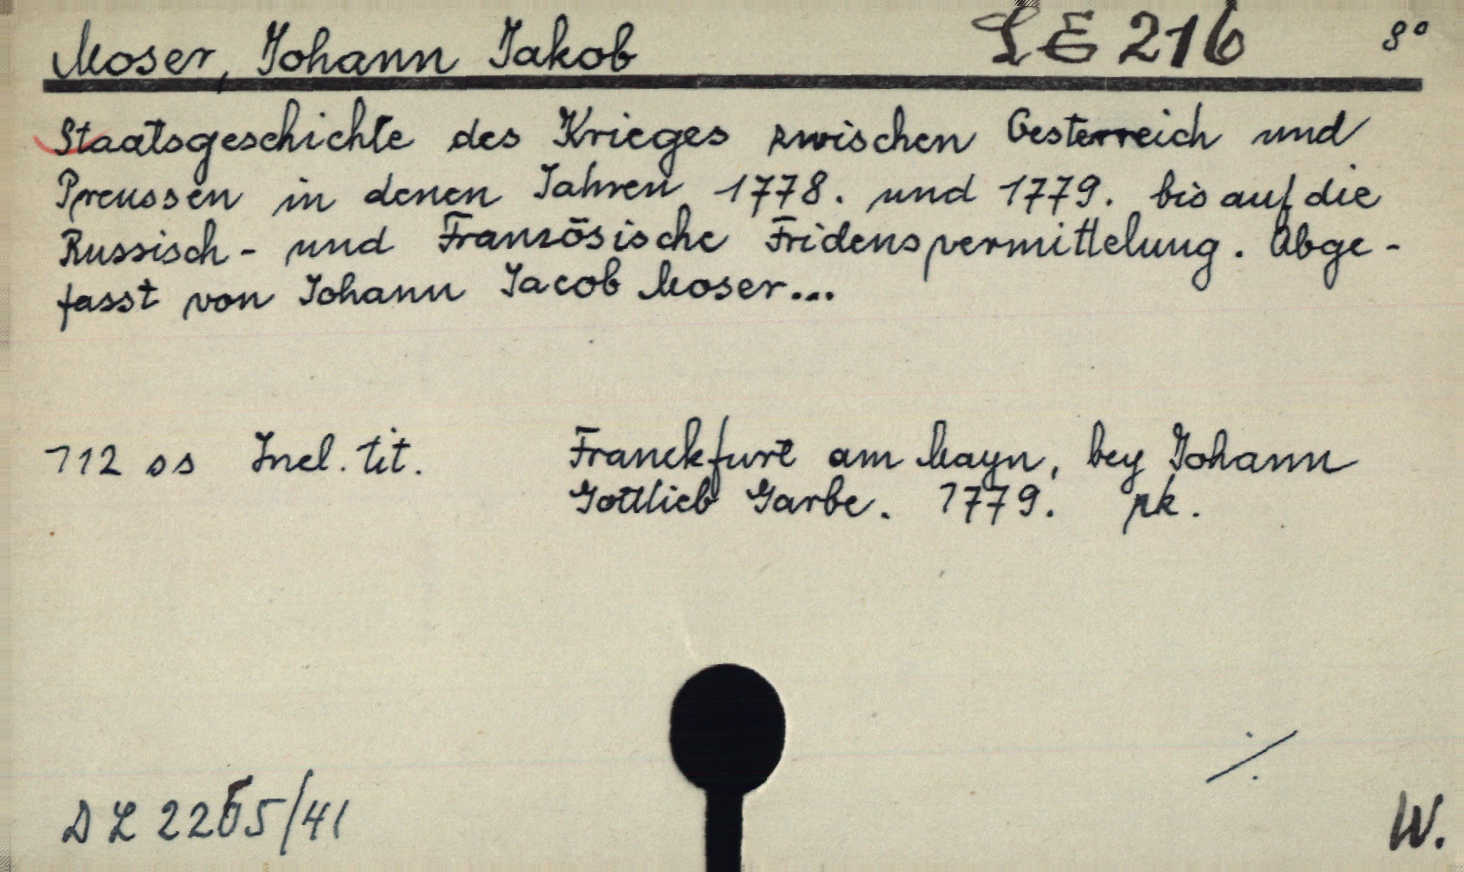 Moser, Johann Jakob SE 216 8°
Staatsgeschichte des Krieges zwischen Oesterreich und
Preussen in denen Jahren 1778. und 1779. bis auf die
Russisch- und Französische Fridensvermittelung. Abge-
fasst von Johann Jacob Moser...
112 ss Incl. tit. Franckfurt am Mayn, bey Johann
Gottlieb Garbe. 1779. pk.
./.
DL 2265/41
W.